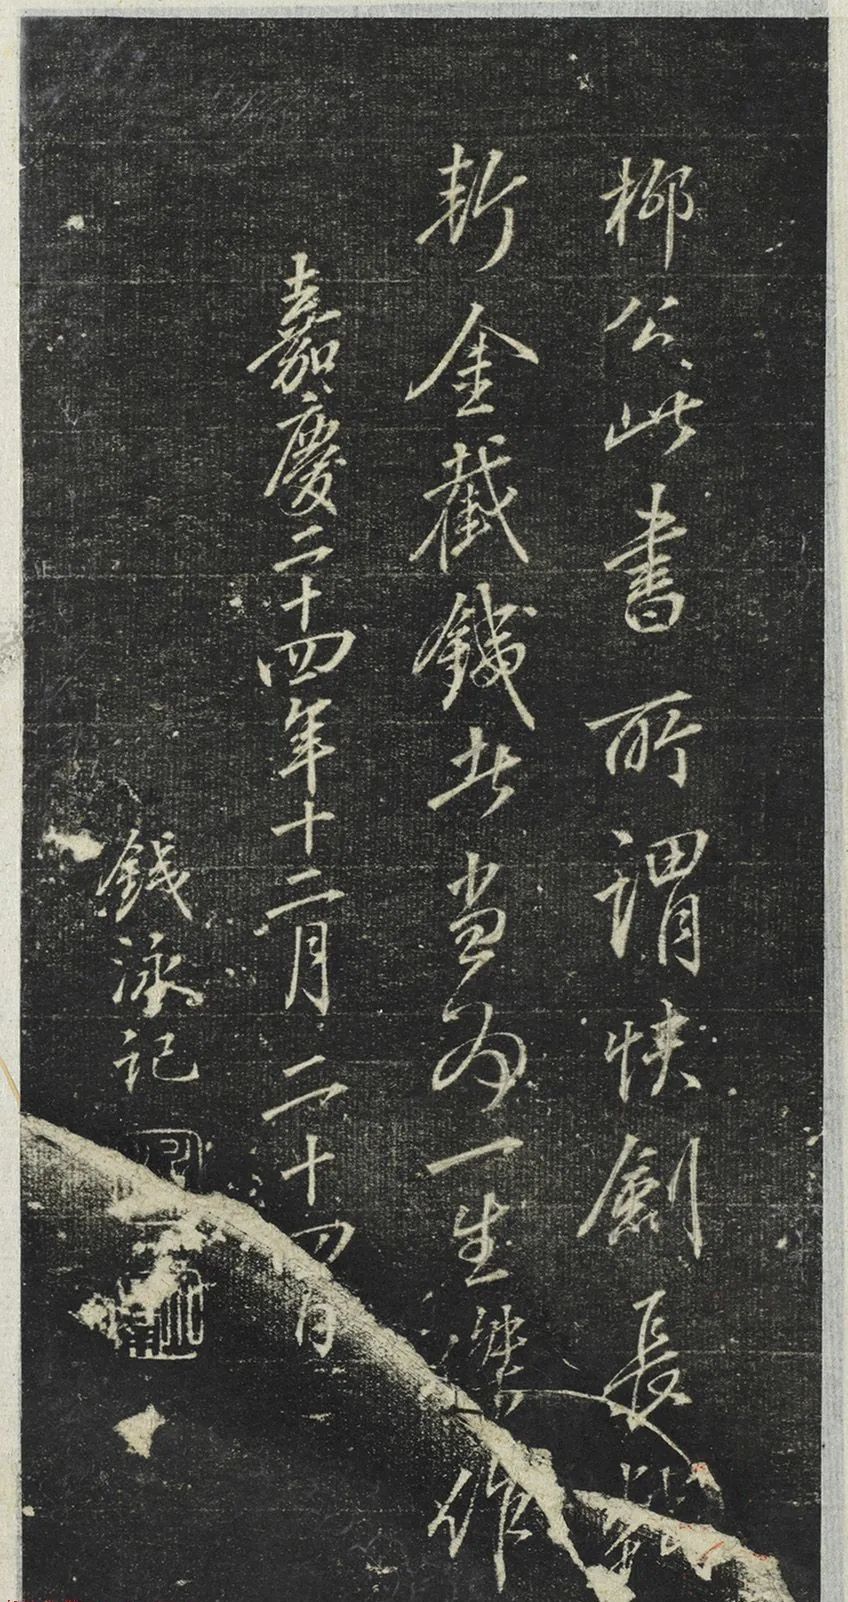 柳公此書所謂快劍長戟
斬金截鐵者當為一生傑作
嘉慶二十四年十二月二十四日
錢泳記